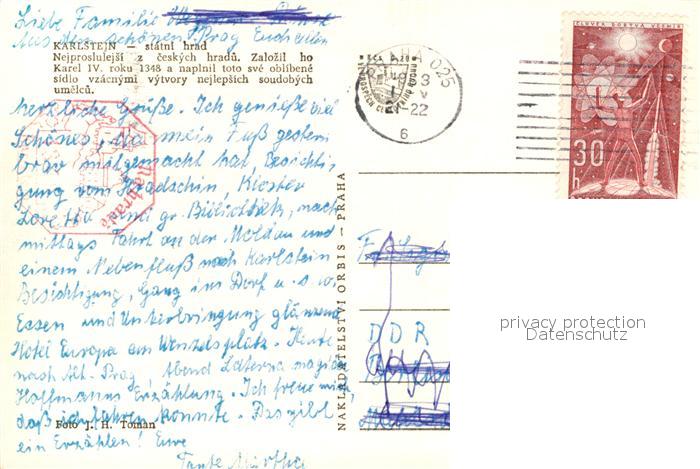 Liebe Familie
Aus dem schönen Prag Euch allen
KARLŠTEJN — státní hrad
Nejproslulejší z českých hradů. Založil ho
Karel IV. roku 1348 a naplnil toto své oblíbené
sídlo vzácnými výtvory nejlepších soudobých
umělců.
herzliche Grüße. Ich genieße viel
Schönes, da mein Fuß gestern
brav mitgemacht hat. Besichti-
gung vom Hradschin, Kloster
Loretto und gr. Bibliothek, nach-
mittags Fahrt an der Moldau und
einem Nebenfluß nach Karlstein
Besichtigung, Gang ins Dorf u. s. w.
Essen und Unterbringung glänzend
Hotel Europa am Wenzelsplatz. Heute
nach Alt-Prag, Abend Laterna magica
Hoffmanns Erzählung. Ich freue mich,
daß ich fahren konnte. Das gibt
Foto J. H. Toman
ein Erzählen! Eure
Tante Martha
NAKLADATELSTVÍ ORBIS — PRAHA
PRAHA 025
-22
6
ČLOVĚK DOBÝVÁ VESMÍR
30
h
DDR
privacy protection
Datenschutz